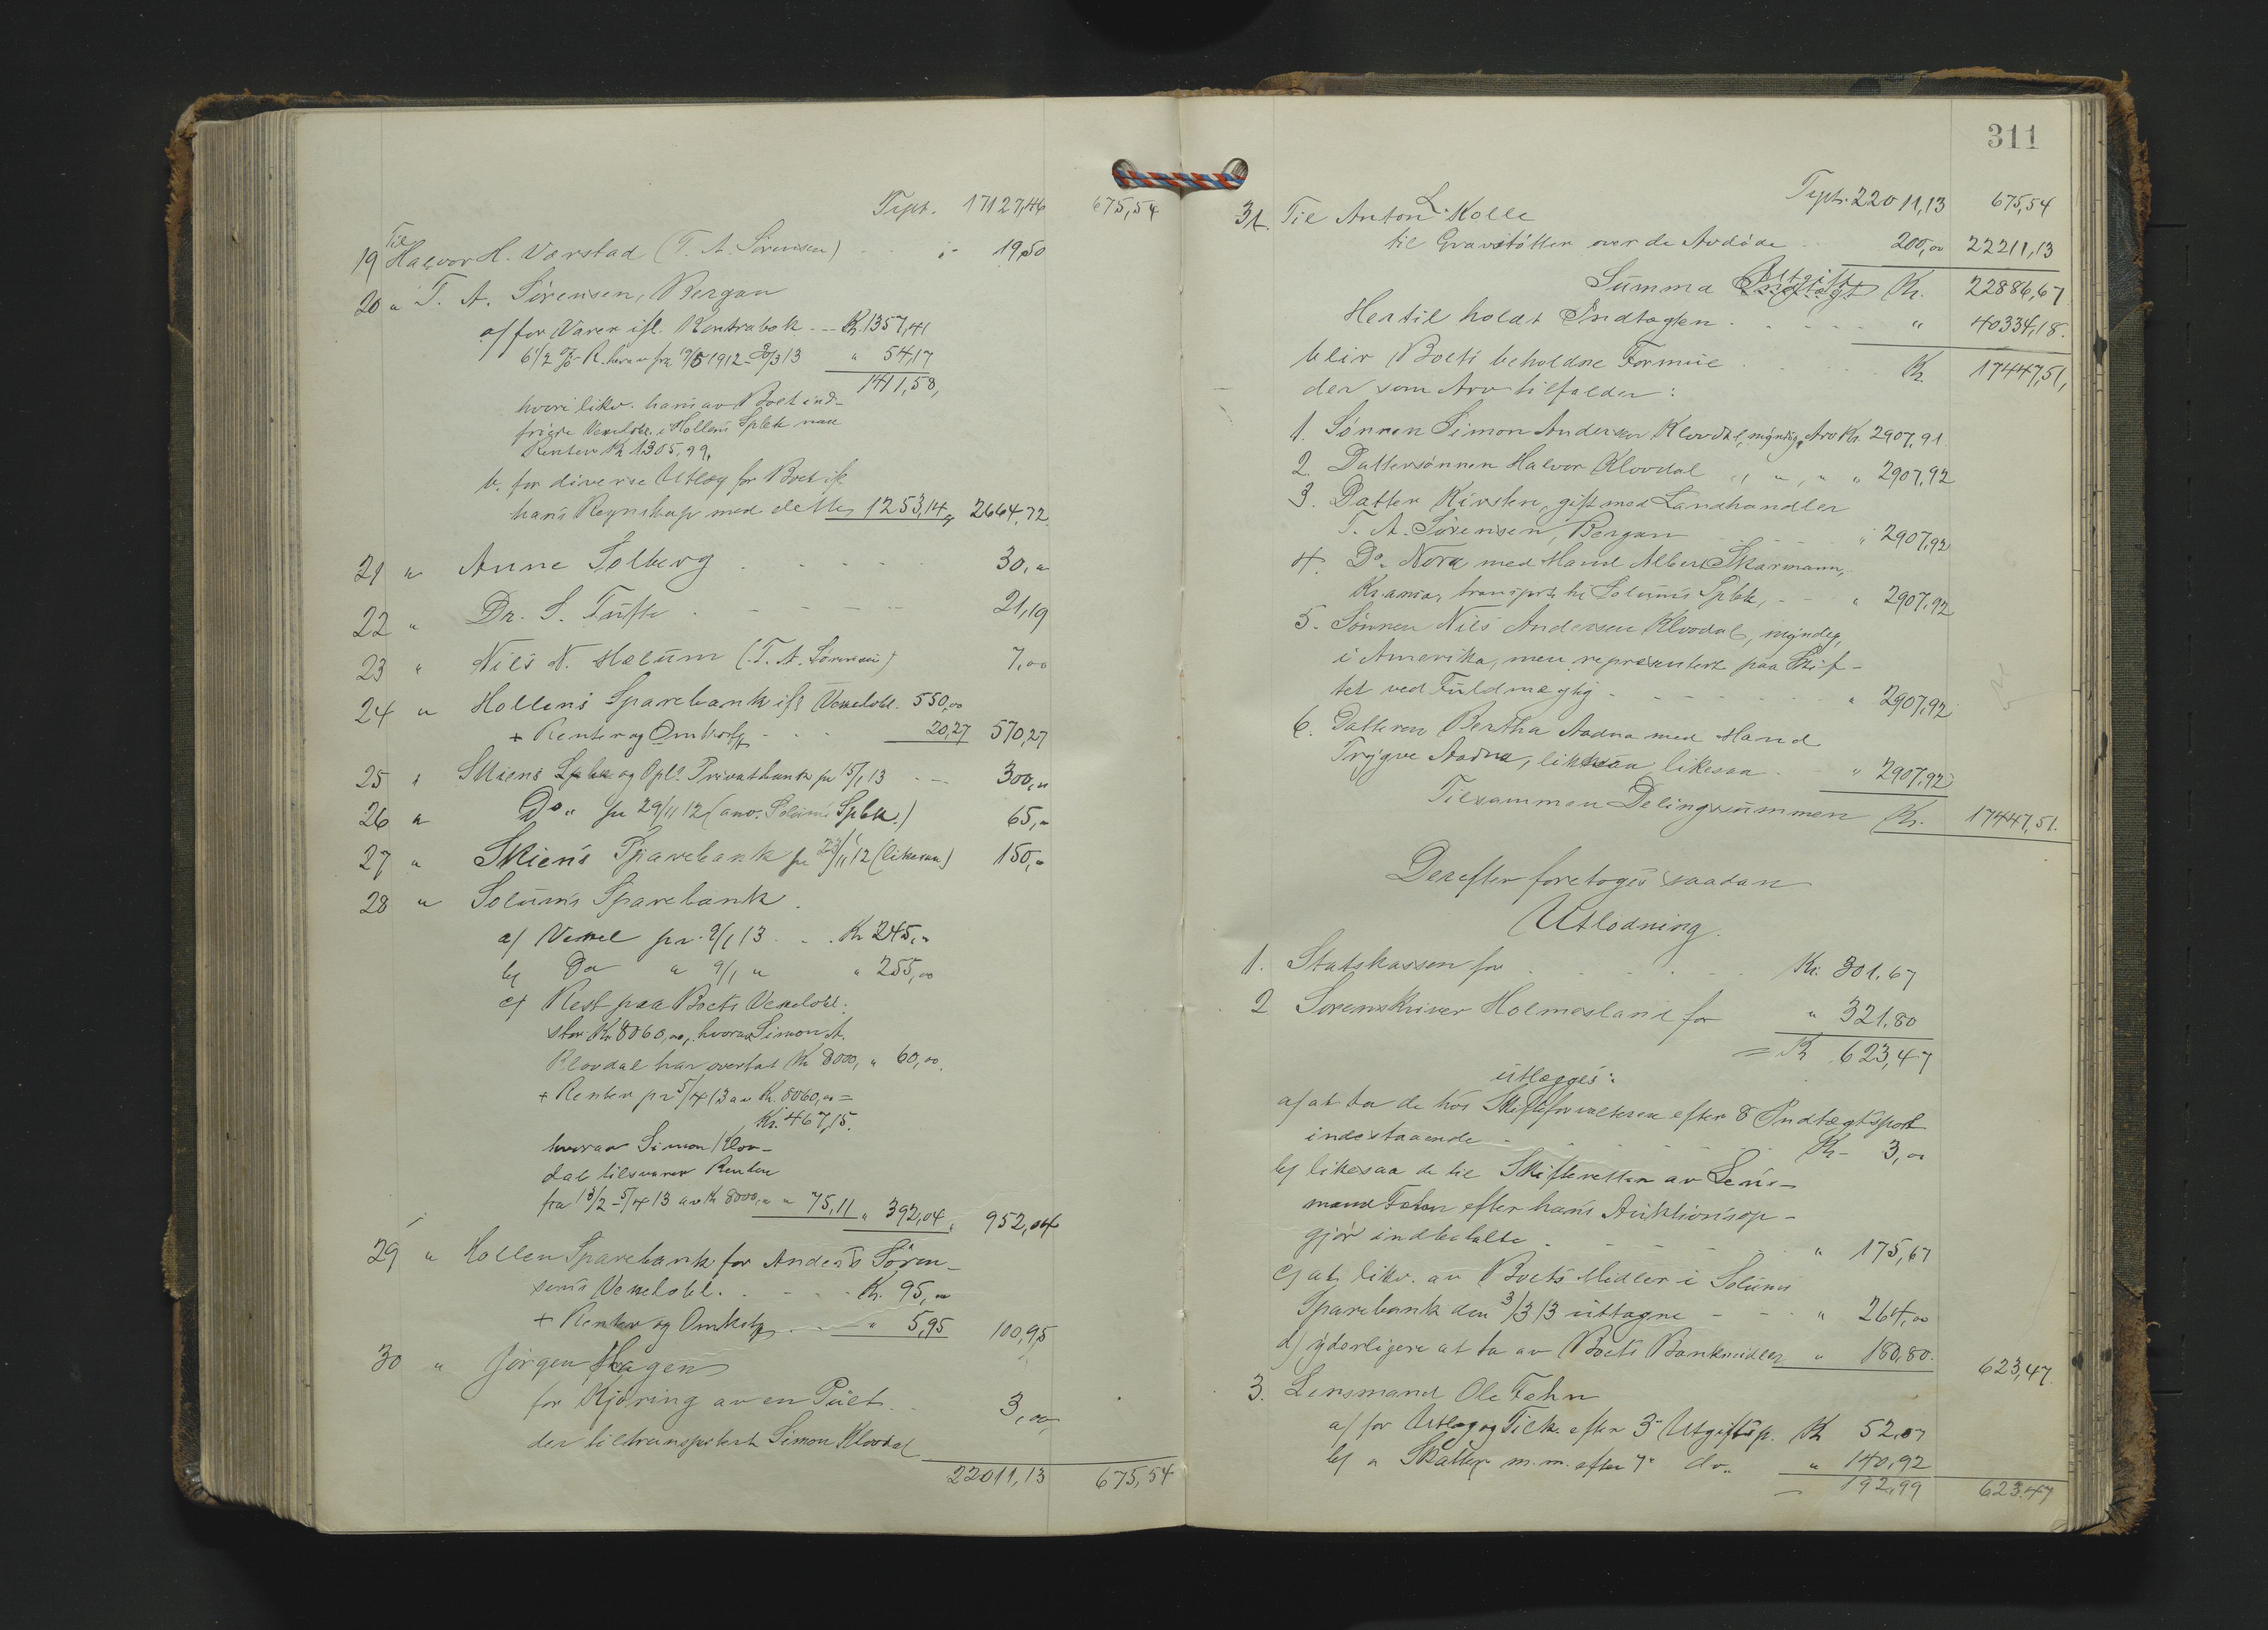 Tspt. 17127,46 675,54
19 Til Halvor H. Værstad (T. A. Sørensen) 19,50
20 " T. A. Sørensen, Bergan
a/ for Varer ifl. Kontrabok Kr. 1357,41
6 1/2 % R. herav fra 19/5 1912 - 30/3 13 " 54,17
1411,58,
hvori likv. hans av Boet ind-
friede Vexelobl. i Hollens Spbk med
Renter Kr 1305,99.
b. for diverse Utlæg for Boet ifl.
hans Regnskap med dette, 1253,14, 2664,72
21 " Anne Solberg 30,"
22 " Dr. S. Tufte 21,19
23 " Nils N. Hælum (T. A. Sørensen) 7,00
24 " Hollens Sparebank ifl Vexelobl. 550,00
+ Renter og Omkostg 20,27 570,27
25 " Skiens Spbk og Opl. Privatbank pr 15/1 13 300,"
26 " Do " pr 29/11 12 (anv. Solums Spbk.) 65,"
27 " Skiens Sparebank pr 23/11 12 (likesaa) 150,"
28 " Solums Sparebank
a/ Vexel pr. 9/1 13 Kr 245,"
b/ Do " 9/1 " " 255,00
c/ Rest paa Boets Vexelobl.
stor Kr 8060,00, hvorav Simon A.
Klovdal har overtat Kr 8000, " 60,00.
+ Renter pr 5/4 13 av Kr. 8060,00 =
Kr. 467,15.
hvorav Simon Klov-
dal tilsvarer Renten
fra 13/2 - 5/4 13 av Kr 8000," " 75,11 " 392,04, 952,04
29 " Hollen Sparebank for Anders Søren-
sens Vexelobl. Kr. 95,"
+ Renter og Omkostg " 5,95 100,95
30 " Jørgen Hagen
for Kjøring av en Pult 3,00
der tiltransportert Simon Klovdal
22011,13 675,54
311
Tspt. 22011,13 675,54
31. Til Anton L. Kolle
til Gravstøtten over de Avdøde 200,00 22211,13
Summa Utgift Kr. 22886,67
Hertil holdt Indtægten " 40334,18.
blir Boets beholdne Formue Kr. 17447,51,
der som Arv tilfalder:
1. Sønnen Simon Andersen Klovdal, myndig, Arv Kr. 2907,91
2. Dattersønnen Halvor Klovdal " " " " 2907,92
3. Datter Kirsten, gift med Landhandler
T. A. Sørensen, Bergan " 2907,92
4. Do. Nora med Mand Albert Skarmann,
Kr.ania, transport til Solums Spbk, " 2907,92
5. Sønnen Nils Andersen Klovdal, myndig,
i Amerika, men representert paa Skif-
tet ved Fuldmægtig " 2907,92
6. Datteren Bertha Aadna med Mand
Trygve Aadna, likesaa " 2907,92
Tilsammen Delingssummen Kr. 17447,51.
Derefter foretoges saadan
Utlodning.
1. Statskassen for Kr. 301,67
2 Sorenskriver Holmesland for " 321,80
= Kr 623,47
utlægges:
a/ at ta de hos Skifteforvalteren efter 8 Indtægtspost
indestaaende Kr 3,00
b/ likesaa de til Skifteretten av Lens-
mand Fehn efter hans Auktionsop-
gjør indbetalte " 175,67
c/ at likv. av Boets Midler i Solums
Sparebank den 3/3 13 uttagne " 264,00
d/ yderligere at ta av Boets Bankmidler " 180,80. 623,47.
3. Lensmand Ole Fehn
a/ for Utlæg og Tilk. efter 3 Utgiftsp. Kr 52,07
b/ " Skatter m.m. efter 7 do. " 140,92
192,99 623,47